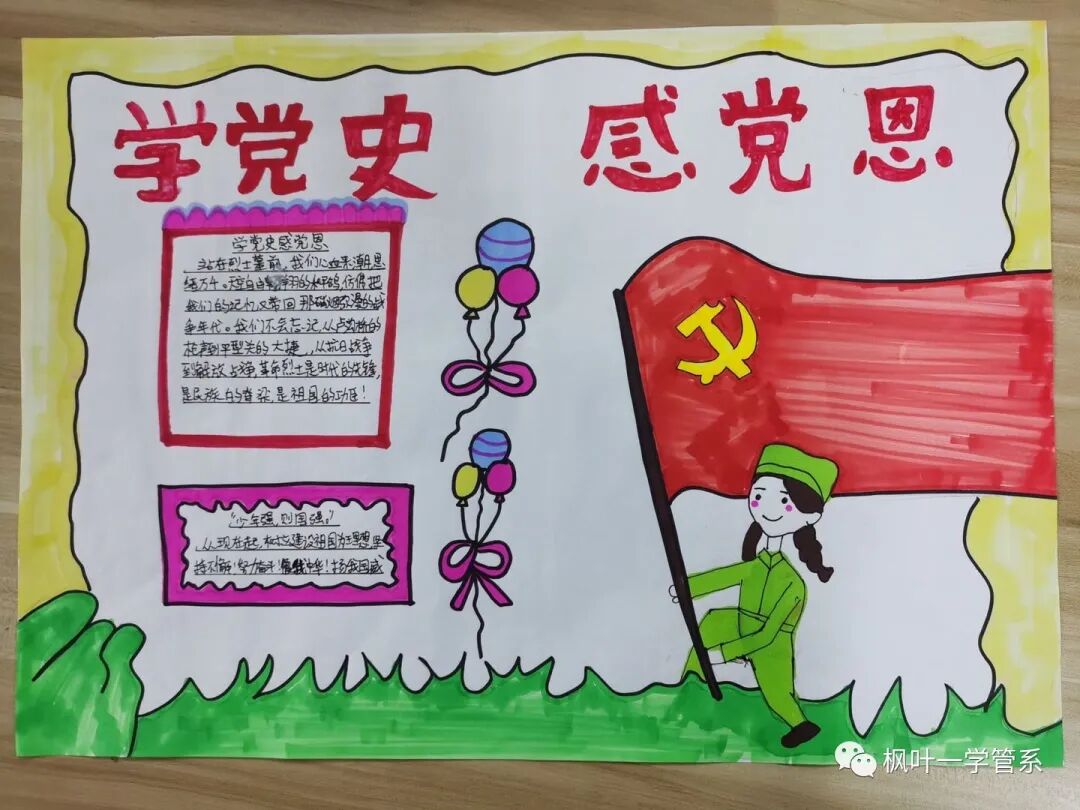 学党史 感党恩
学党史感党恩
站在烈士墓前,我们心血来潮思
绪万千。空白的
我们的记忆又带回那硝烟弥漫的战
争年代。我们不会忘记,从卢沟桥的
炮声到平型关的大捷,从抗日战争
到解放战争,革命烈士是时代的先锋,
是民族的脊梁,是祖国的功臣!
“少年强,则国强。”
从现在起,树立建设祖国
持不懈!努力奋斗!中华!扬我国威
枫叶一学管系